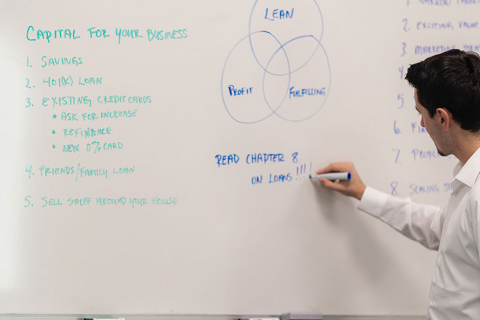 CAPITAL FOR YOUR BUSINESS
1. SAVINGS
2. 401(K) LOAN
3. EXISTING CREDIT CARDS
• ASK FOR INCREASE
• REFINANCE
• NEW 0% CARD
4. FRIENDS/FAMILY LOAN
5. SELL STUFF AROUND YOUR HOUSE
LEAN
PROFIT
FULFILLING
READ CHAPTER 8
ON LOANS!!!!
1.
2. EXISTING VALUE
3. MARKETING
4
5
6.
7.
8.